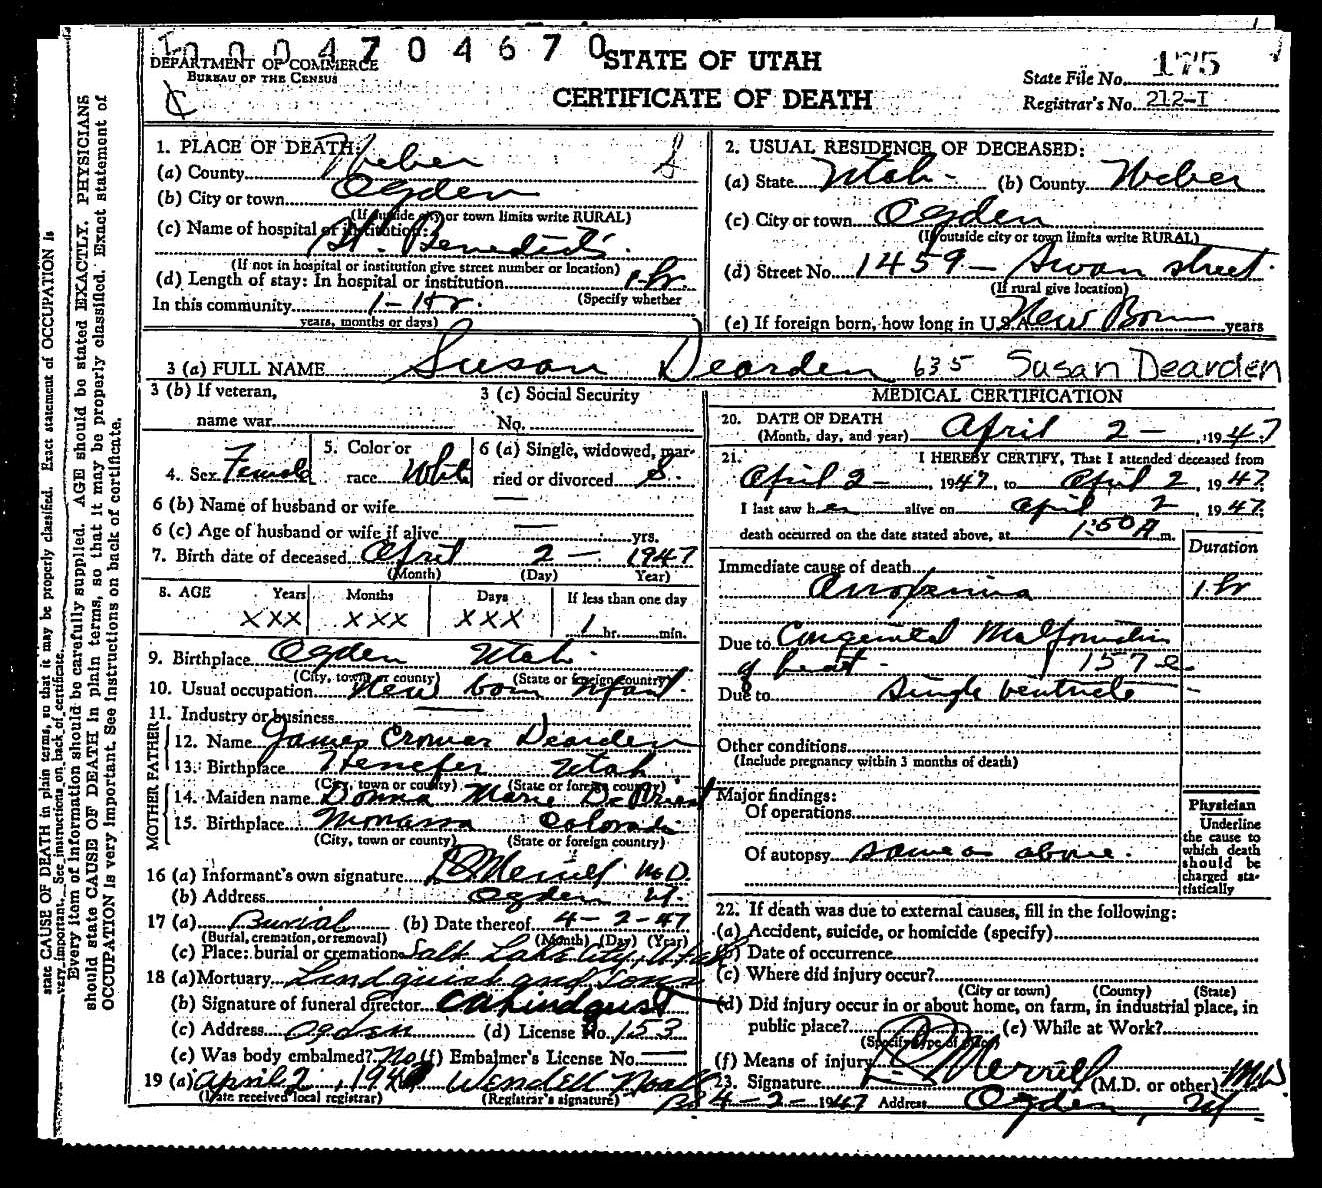 0004704670
STATE OF UTAH
CERTIFICATE OF DEATH
DEPARTMENT OF COMMERCE
BUREAU OF THE CENSUS
State File No. 175
Registrar's No. 212-I
1. PLACE OF DEATH:
(a) County Weber
(b) City or town Ogden
(If outside city or town limits write RURAL)
(c) Name of hospital or institution:
St. Benedict's
(If not in hospital or institution give street number or location)
(d) Length of stay: In hospital or institution 1 hr.
(Specify whether
In this community 1-Hr.
years, months or days)
2. USUAL RESIDENCE OF DECEASED:
(a) State Utah (b) County Weber
(c) City or town Ogden
(If outside city or town limits write RURAL)
(d) Street No. 1459 - Swan street.
(If rural give location)
(e) If foreign born, how long in U.S.A. New Born years
3 (a) FULL NAME Susan Dearden 635 Susan Dearden
3 (b) If veteran,
name war
3 (c) Social Security
No.
4. Sex Female
5. Color or
race White
6 (a) Single, widowed, mar-
ried or divorced S.
6 (b) Name of husband or wife
6 (c) Age of husband or wife if alive yrs.
7. Birth date of deceased April 2 - 1947
(Month) (Day) Year)
8. AGE Years Months Days If less than one day
XXX XXX XXX 1 hr. min.
9. Birthplace Ogden Utah
(City, town or county) (State or foreign country)
10. Usual occupation New born infant.
11. Industry or business
FATHER
12. Name James Crowar Dearden
13. Birthplace Henefer Utah
(City, town or county) (State or foreign country)
MOTHER
14. Maiden name Donna Marie DePriest
15. Birthplace Manassa Colorado
(City, town or county) (State or foreign country)
16 (a) Informant's own signature Merrill M.D.
(b) Address Ogden Ut.
17 (a) Burial (b) Date thereof 4-2-47
(Burial, cremation, or removal) (Month) (Day) (Year)
(c) Place: burial or cremation Salt Lake City, Utah
18 (a) Mortuary Lindquist and Sons
(b) Signature of funeral director CA Lindquist
(c) Address Ogden (d) License No. 153
(e) Was body embalmed? No (f) Embalmer's License No.
19 (a) April 2, 1947 Wendell Noall
(Date received local registrar) (Registrar's signature)
MEDICAL CERTIFICATION
20. DATE OF DEATH
(Month, day, and year) April 2 - , 1947
21. I HEREBY CERTIFY, That I attended deceased from
April 2 - , 1947, to April 2, 1947.
I last saw her alive on April 2, 1947.
death occurred on the date stated above, at 1:50 A m.
Duration
Immediate cause of death
1 hr
Due to Congenital Malformation
of heart - 157 e
Due to single ventricle -
Other conditions
(Include pregnancy within 3 months of death)
Major findings:
Of operations
Of autopsy same as above.
Physician
Underline
the cause to
which death
should be
charged sta-
tistically
22. If death was due to external causes, fill in the following:
(a) Accident, suicide, or homicide (specify)
(b) Date of occurrence
(c) Where did injury occur?
(City or town) (County) (State)
(d) Did injury occur in or about home, on farm, in industrial place, in
public place? (e) While at Work?
(Specify type of place)
(f) Means of injury
23. Signature Merrill (M.D. or other) M.D
4-2-1947 Address Ogden, Ut.
state CAUSE OF DEATH in plain terms, so that it may be properly classified. Exact statement of OCCUPATION is
very important. See instructions on back of certificate.
Every item of information should be carefully supplied. AGE should be stated EXACTLY. PHYSICIANS
should state CAUSE OF DEATH in plain terms, so that it may be properly classified. Exact statement of
OCCUPATION is very important. See instructions on back of certificate.